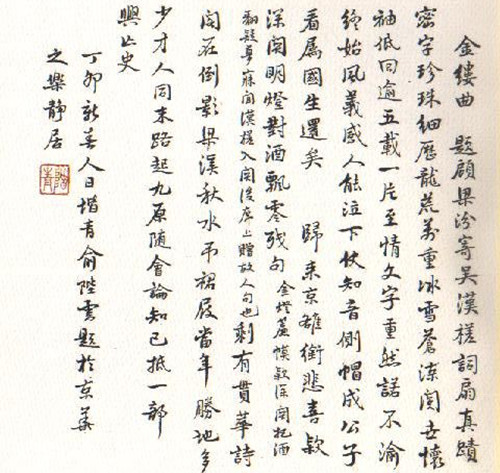 金縷曲 題顧梁汾寄吳漢槎詞扇真蹟
密字珍珠細歷龍荒萬重冰雪蒼涼閱世懷
袖低回逾五載一片至情文字重然諾不渝
終始風義感人能泣下使知音側帽成公子
看屬國生還矣 歸來京雒銜悲喜欵
深關明燈對酒飄零殘句 金燈簾幙欵深關把酒
翻疑夢寐間漢槎入關後席上贈故人句也 剩有貫華詩
閣在倒影梁溪秋水吊裙屐當年勝地多
少才人同末路起九原隨會論知己抵一部
興亡史
丁卯新春人日堦青俞陛雲題於京華
之樂靜居